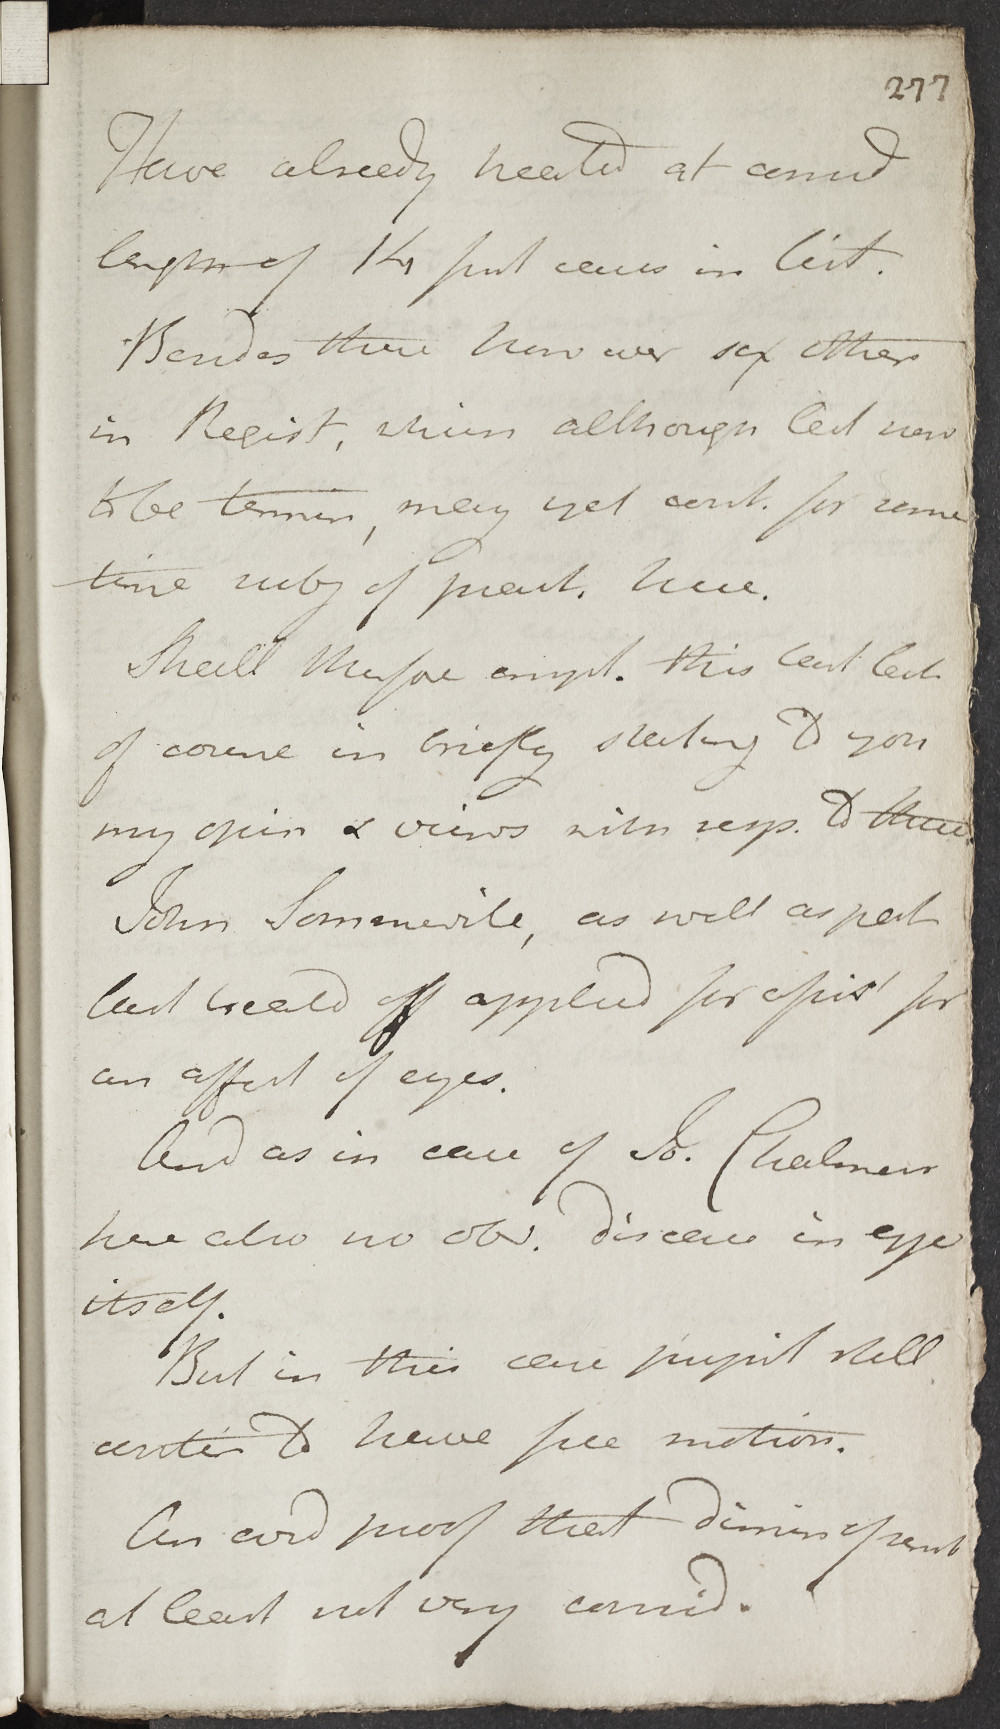 277
Have already treated at consid
length of 14 first cases in list.
Besides these however six others
in Regist, which although last now
to be termin, may yet cont. for some
time subj of pract. here.
Shall therefore empl. this last lect
of course in briefly stating to you
my opin & views with resp. to these.
John Sommervile, as well as pat
last treated off applied for assist for
an affect of eyes.
And as in case of Jo. Chalmers
here also no obv. disease in eye
itself.
But in this case pupil still
contin to have free motion.
An evid proof that dimin of sensib
at least not very consid.